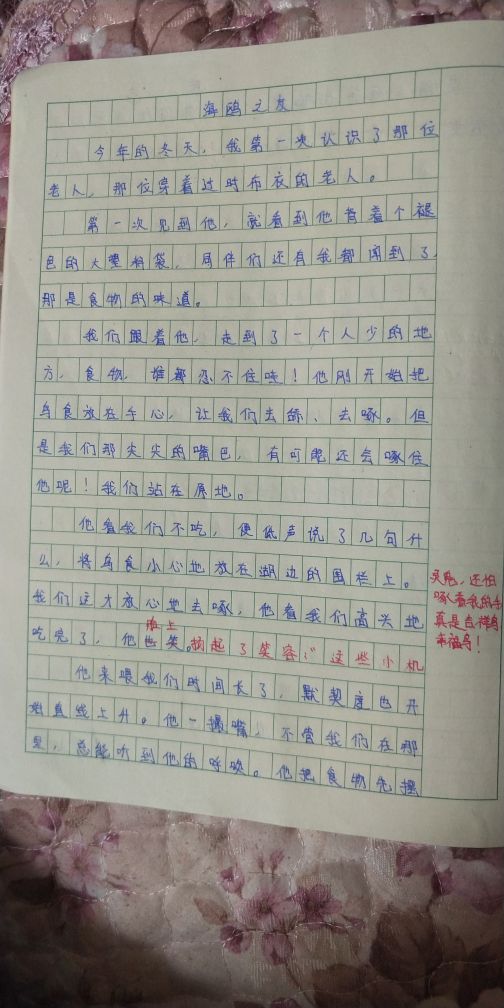 海鸥之友
今年的冬天，我第一次认识了那位
老人，那位穿着过时布衣的老人。
第一次见到他，就看到他背着个褪
色的大塑料袋，同伴们还有我都闻到了，
那是食物的味道。
我们跟着他，走到了一个人少的地
方，食物，谁都忍不住哇！他刚开始把
鸟食放在手心，让我们去舔、去啄。但
是我们那尖尖的嘴巴，有可能还会啄住
他呢！我们站在原地。
他看我们不吃，便低声说了几句什
么，将鸟食小心地放在湖边的围栏上。
我们这才放心地去啄，他看我们高兴地
吃完了，他脸上也笑。扬起了笑容："这些小机
灵鬼，还怕
啄着我的手
真是吉祥鸟
幸福鸟！
他来喂我们时间长了，默契度也开
始直线上升。他一撮嘴，不管我们在哪
里，总能听到他的呼唤。他把食物先摆